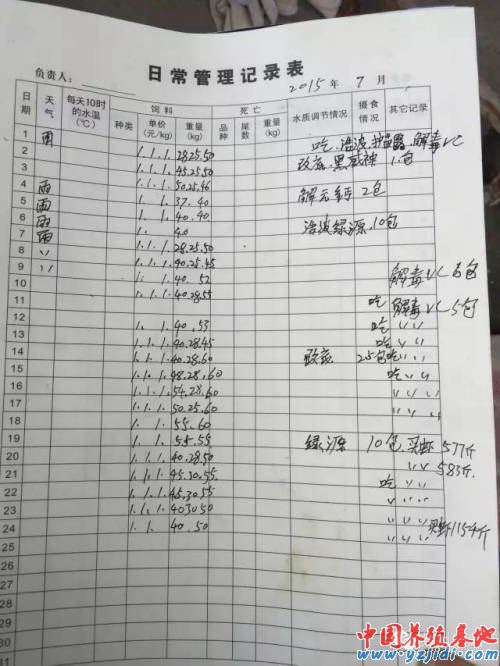 日常管理记录表
负责人： 2015年 7月
日期 天气 每天10时的水温(℃) 饲料 死亡 水质调节情况 摄食情况 其它记录
种类 单价(元/kg) 重量(kg) 品种 尾数 重量(kg)
1 雨 吃 解毒VC
2 1.1.1.28.25.50 改底.黑威神 1包
3 1.1.1.45.25.50
4 雨 1.1.1.50.25.46 2包
5 雨 1.1.37.40
6 雨 1.1.40.40 绿源.10包
7 雨 1. 40
8 〃 1.1.1.28.25.50
9 〃 1.1.1.40.25.45 解毒VC 6包
10 40.52
11 1.1.1.40.28.55 吃 解毒VC 5包
12 1.1.40.53 吃 〃〃
13 1.1.1.40.28.45 吃 〃〃
14 1.1.1.40.28.60 改底 25包 吃 〃〃
15 1.1.1.48.28.60 吃 〃〃
16 1.1.1.54.28.60 〃〃〃
17 1.1.1.50.25.60 〃〃〃
18 1.1.55.60
19 1.1.55.55 绿源 10包 买虾577斤
20 1.1.1.40.28.50 〃〃 583斤
21 1.1.1.45.30.55 吃 〃〃
22 1.1.1.45.30.55 〃〃〃
23 1.1.1.40.30.50 〃〃〃 买虾1154斤
24 1.1.40.50 〃〃〃
25
26
27
28
29
30
31
中国养殖基地
www.yzjidi.com